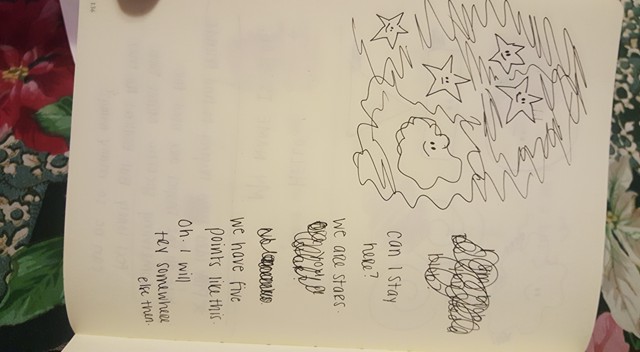 can I stay
here?
we are stars
we have five
points like this
oh. I will
try somewhere
else then.